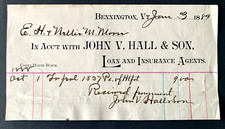 BENNINGTON, Vt Jan 3 1889
E. H. & Nellie M. Moon
IN ACCT WITH JOHN V. HALL & SON,
COURT HOUSE BLOCK.
LOAN AND INSURANCE AGENTS.
1888
Oct 1 To pol 1537 9.00
Received payment
John V. Hall & Son